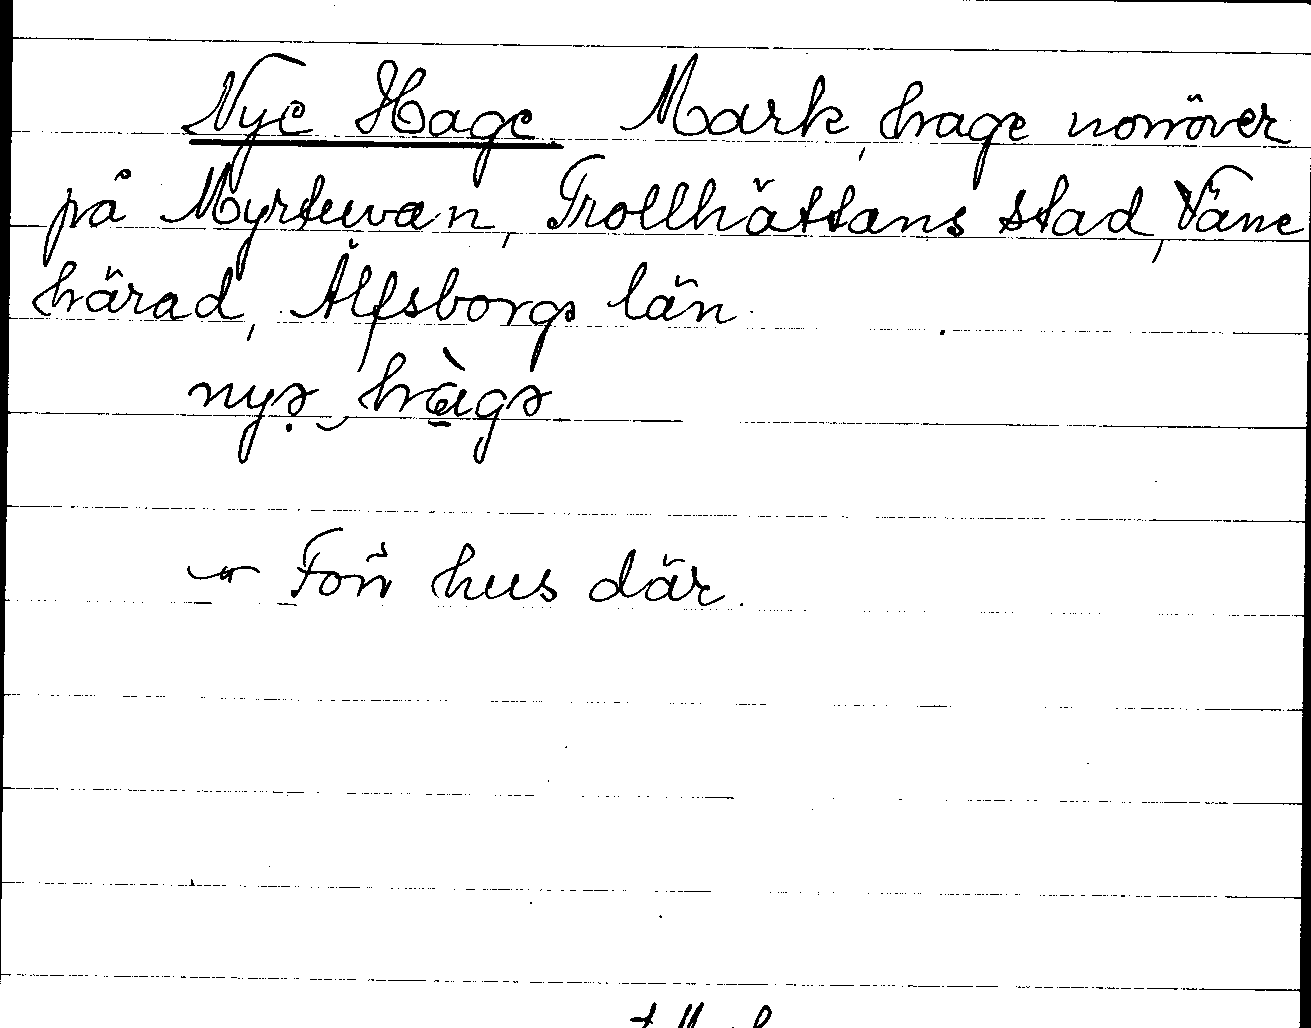 Nye Hage Mark, hage norröver
på Myrtuvan, Trollhättans stad, Väne
härad, Älfsborgs län.
nyə̣ ‿hàgə
Förr hus där.